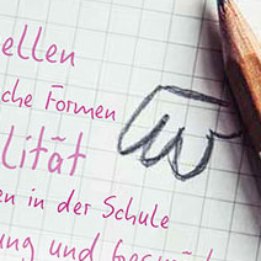 ellen
che Formen
lität
en in der Schule
ung und